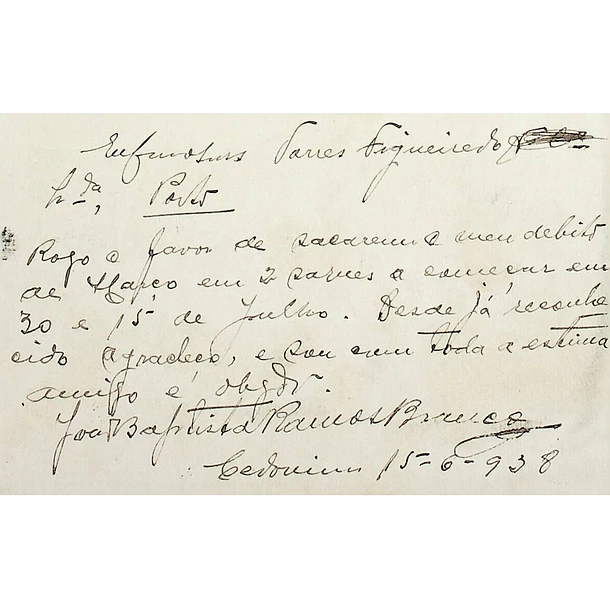 Torres Figueiredo
L.da, Porto
Rogo o favor de sacarem o meu debito
de Março em 2 a começar em
30 e 15 de Julho. Desde já reconhe
cido agradeço, e sou com toda a estima
amigo e obgdº.
João Baptista Ramos Branco
15-6-938